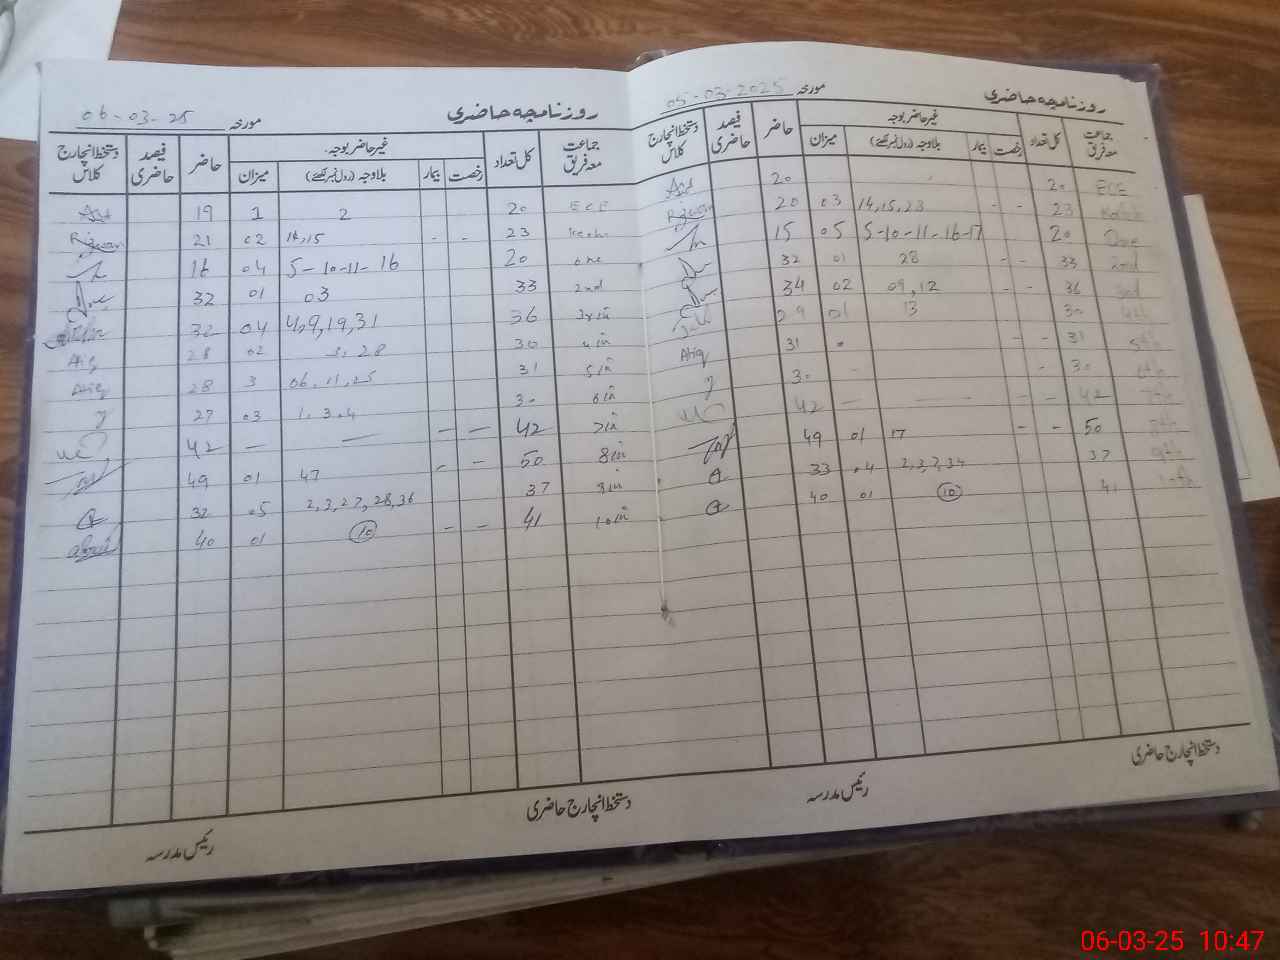 روزنامچہ حاضری
مورخہ 05-03-2025
جماعت معہ فریق کل تعداد غیر حاضر بوجہ حاضر فیصد حاضری دستخط انچارج کلاس
رخصت بیمار بلاوجہ (رول نمبر لکھیے) میزان
ECE 20 20
23 - - 14,15,23 03 20 Rizwan
One 20 - - 5-10-11-16-17 05 15
2nd 33 - - 28 01 32
3rd 36 - - 09,12 02 34
4th 30 13 01 29
5th 31 - - 31 Atiq
6th 30 - - 30
7th 42 - - — — 42
8th 50 - - 17 01 49
9th 37 2,3,7,34 04 33
10th 41 10 01 40
دستخط انچارج حاضری
رئیس مدرسہ
روزنامچہ حاضری
مورخہ 06-03-25
جماعت معہ فریق کل تعداد غیر حاضر بوجہ۔ حاضر فیصد حاضری دستخط انچارج کلاس
رخصت بیمار بلاوجہ (رول نمبر لکھیے) میزان
ECE 20 2 1 19
23 - - 14,15 02 21 Rizwan
one 20 5-10-11-16 04 16
2nd 33 03 01 32
3rd 36 4,9,19,31 04 32
4th 30 28 02 28 Atiq
5th 31 06,11,25 3 28 Atiq
6th 30 1.3.4 03 27
7th 42 - - — — 42
8th 50 - - 47 01 49
9th 37 2,3,27,28,36 05 32
10th 41 - - 10 01 40
دستخط انچارج حاضری
رئیس مدرسہ
06-03-25 10:47